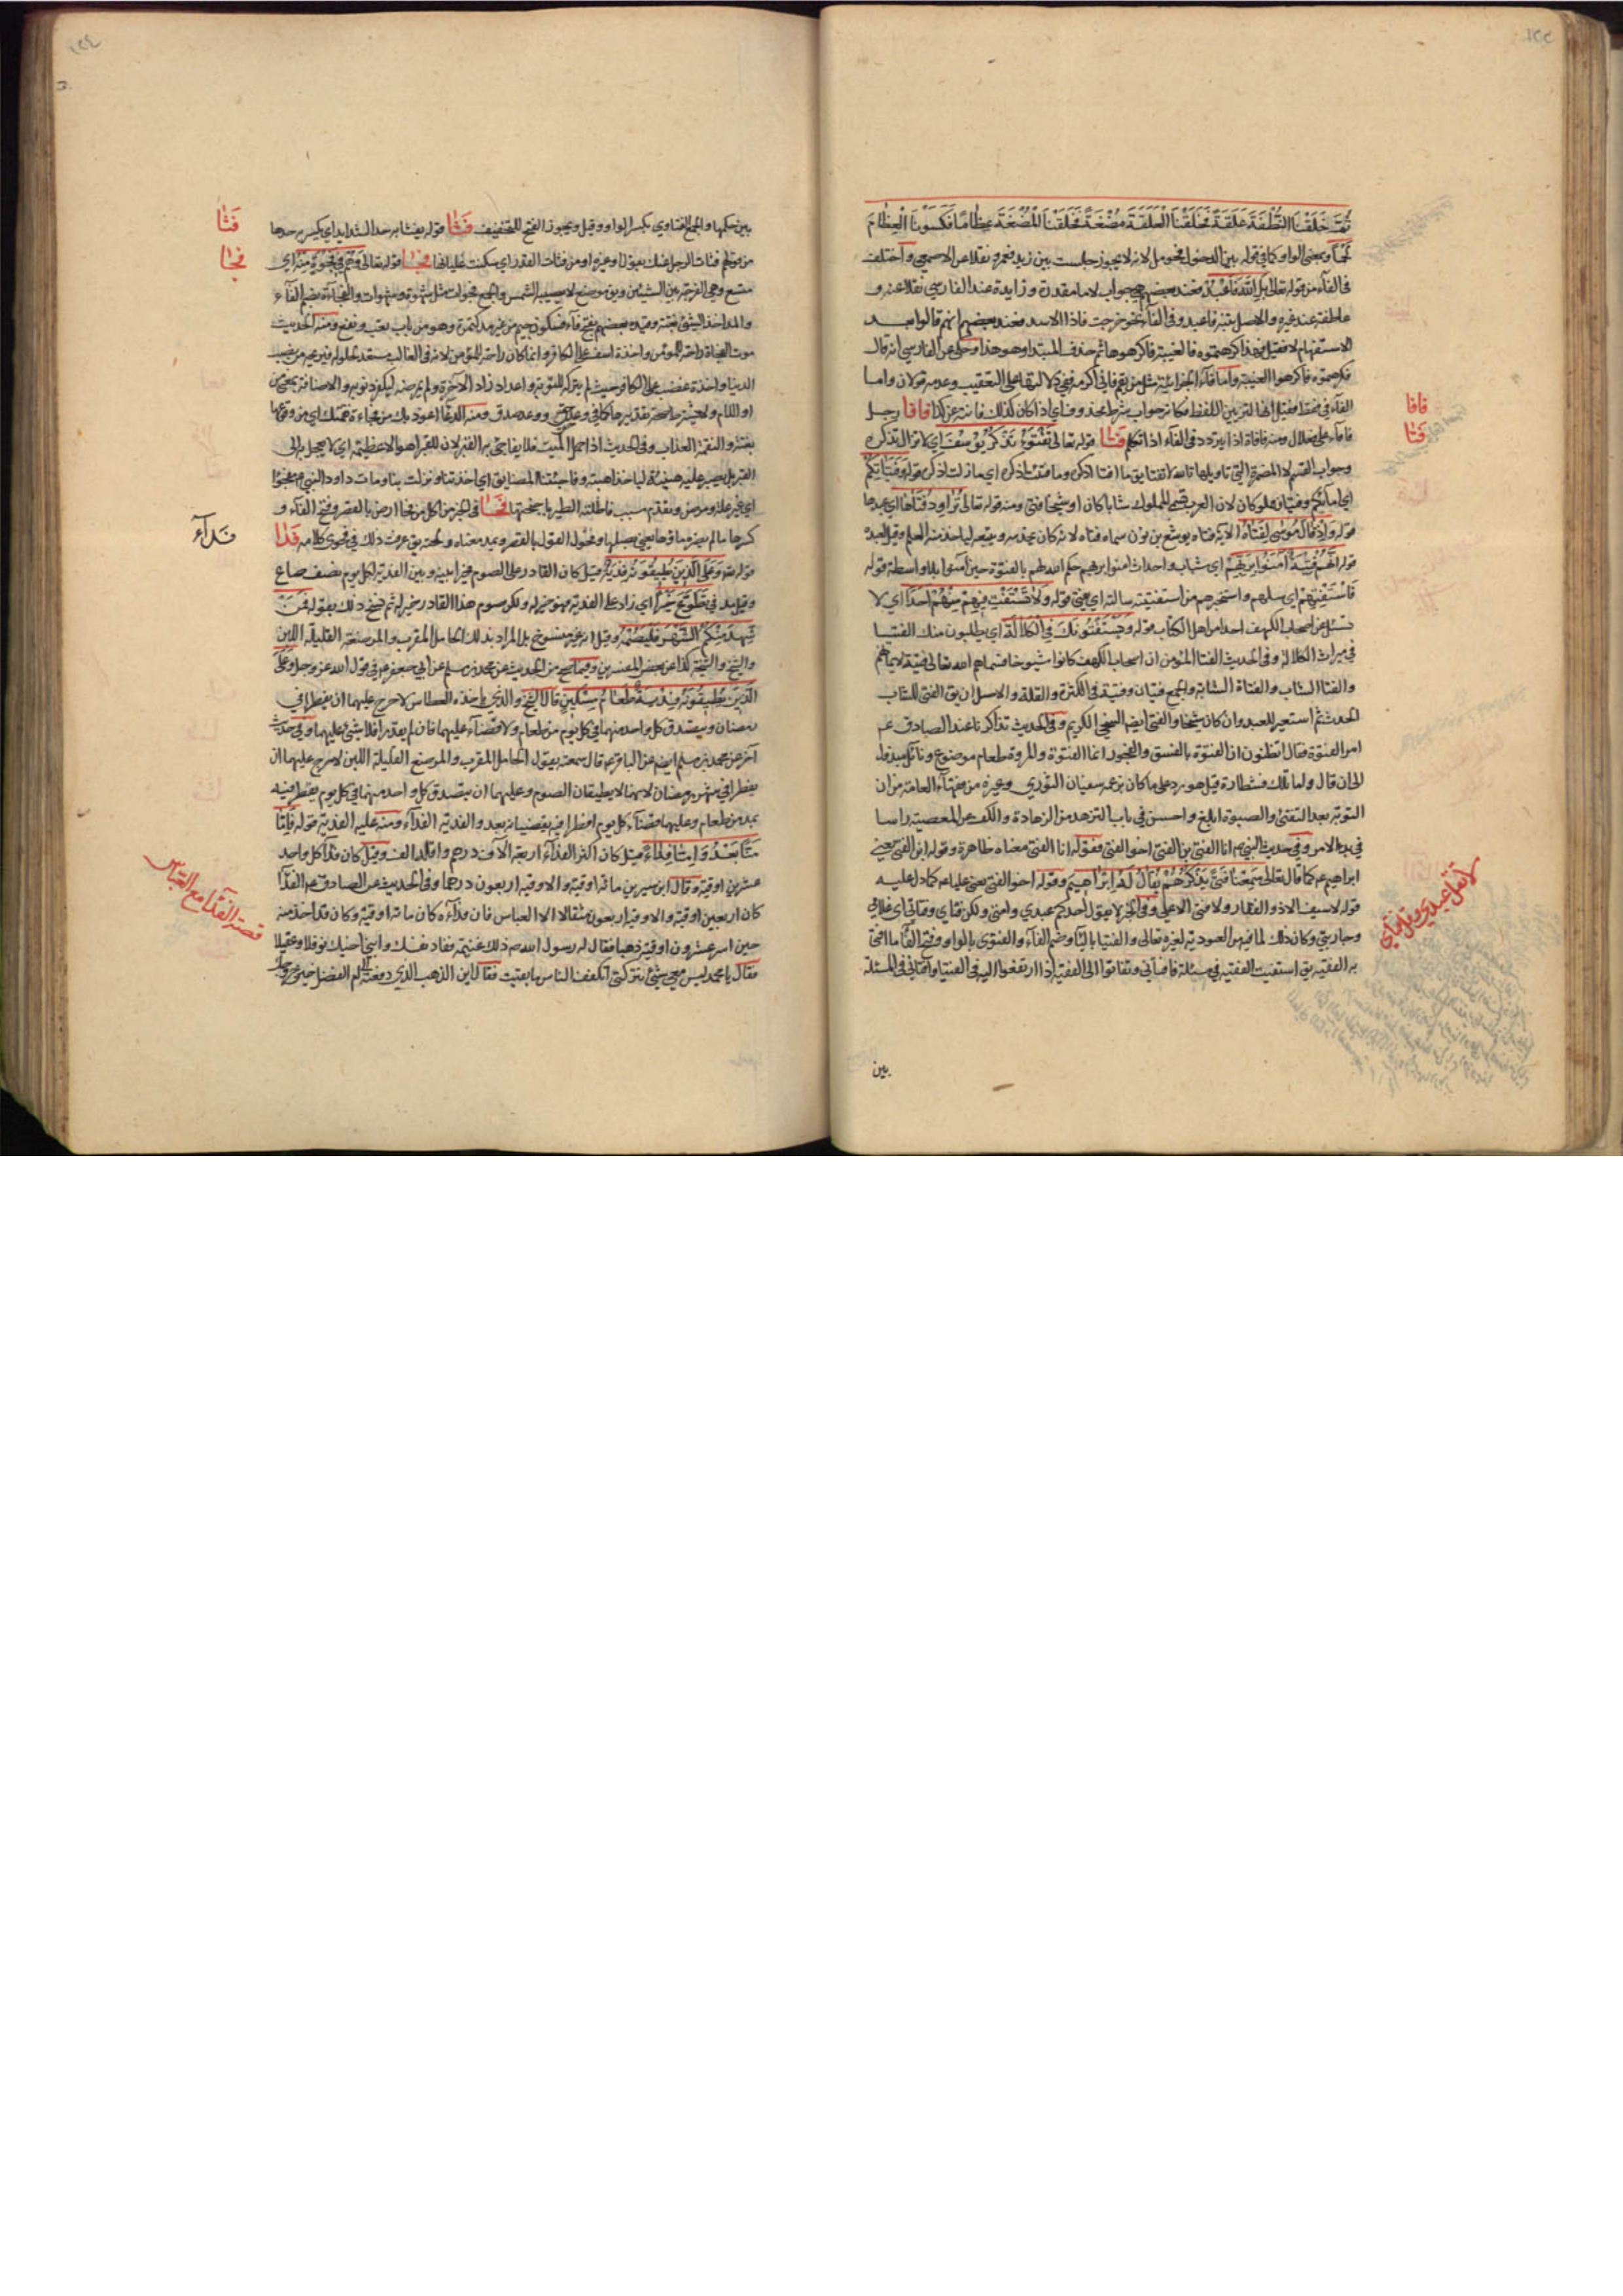 ثُمَّ خَلَقْنَا النُّطْفَةَ عَلَقَةً فَخَلَقْنَا الْعَلَقَةَ مُضْغَةً فَخَلَقْنَا الْمُضْغَةَ عِظَامًا فَكَسَوْنَا الْعِظَامَ
لحما وبمعنى الواو كما في قوله بين الدخول فحومل لانه لا يجوز جلست بين زيد فعمرو نقلا عن الاصمعي واختلف
في الفآء من قوله تعالى بل الله فاعبد فعند بعضهم هي جواب لاما مقدرة وزايدة عند الفارسي نقلا عنه و
عاطفة عند غيره والاصل تنبه فاعبد وفي الفآء نحو خرجت فاذا الاسد فعند بعضهم انهم قالوا بعد
الاستفهام لا فقيل فهذا كرهتموه فالغيبة فاكرهوها ثم حذف المبتدا وهو هذا وحكي عن الفارسي انه قال
فكرهتموه فاكرهوا الغيبة واما فآء الجزائية مثل من يقم فاني اكرمه ففي دلالتها على التعقيب وعدمه قولان واما
الفآء في فقط فقيل انها لتزيين اللفظ فكانه جواب شرط محذوف اي اذا كان كذلك فانته عن كذا فافا رجل
فافاء على فعلال ومنه فافاة اذا يتردد في الفآء اذا تكلم فتا قوله تعالى تفتؤ تذكر يوسف اي لا تزال تذكره
وجواب القسم لا المضمرة التي تاويلها تالله لا تفتا يق ما افتا اذكره وما فتئت اذكره اي ما زلت اذكره قوله وفتياتكم
اي امائكم وفتيان مملوكان لان العرب تسمي المملوك شابا كان او شيخا فتى ومنه قوله تعالى تراود فتاها اي عبدها
قوله واذ قال موسى لفتاه الآية فتاه يوشع بن نون سماه فتاه لانه كان يخدمه ويتبعه لياخذ منه العلم وقيل لعبده
قوله انهم فتية آمنوا بربهم اي شباب واحداث امنوا بربهم حكم الله لهم بالفتوة حين آمنوا بلا واسطة قوله
فاستفتهم اي سلهم واستخبرهم من استفتيته سالته اي يفتي قوله ولا تستفت فيهم منهم احدا اي لا
تسئل عن اصحاب الكهف احدا من اهل الكتاب قوله ويستفتونك في الكلالة اي يطلبون منك الفتيا
في ميراث الكلالة وفي الحديث الفتا المؤمن ان اصحاب الكهف كانوا شيوخا فسماهم الله تعالى فتية لايمانهم
والفتا الشاب والفتاة الشابة والجمع فتيان وفتية في الكثرة والقلة والاصل ان يق الفتى للشاب
الحدث ثم استعير للعبد وان كان شيخا والفتى ايضم السخي الكريم وفي الحديث تذاكرنا عند الصادق عم
امر الفتوة فقال اتظنون ان الفتوة بالفسق والفجور انما الفتوة والمروة طعام موضوع ونائل مبذول
الى ان قال واما تلك فشطارة قيل هو رد على ما كان يزعمه سفيان الثوري وغيره من فقهآء العامة من ان
التوبة بعد التفتي والصبوة ابلغ واحسن في باب التزهد من الزهادة والكف عن المعصية راسا
في بدء الامر وفي حديث النبي ص انا الفتى بن الفتى اخو الفتى فقوله انا الفتى معناه ظاهرة وقوله ابن الفتى يعني
ابراهيم عم كما قال تعالى سمعنا فتى يذكرهم يقال له ابراهيم وقوله اخو الفتى يعني عليا عم كما دل عليه
قوله لا سيف الا ذو الفقار ولا فتى الا علي وفي الخبر لا يقول احدكم عبدي وامتي ولكن فتاي وفتاتي اي غلامي
وجاريتي وكان ذلك لما فيه من العبودية لغيره تعالى والفتيا باليآء وضم الفآء والفتوى بالواو وفتح الفآء ما افتى
به الفقيه يق استفتيت الفقيه في مسئلة فافتاني وتفاتوا الى الفقيه اذا ارتفعوا اليه في الفتيا وافتاني في المسئلة
بين
فافا
فتا
لا تقل عبدي وقل فتاي
بين حكمها والجمع الفتاوي بكسر الواو وقيل ويجوز الفتح للتخفيف فثا قوله يفثا به حد الشدايد اي يكسر به حدها
من قولهم فثات الرجل عنك بقول او غيره او من فثات القدر اي سكنت غليانها فجا قوله تعالى وهم في فجوة منه اي
متسع وهي الفرجة بين الشيئين ويق موضع لا يصيبه الشمس والجمع فجوات مثل شهوة وشهوات والفجآءة بضم الفآء
والمد اخذ الشئ بغتة وقيده بعضهم بفتح فآء فسكون جيم من غير مد كتمرة وهو من باب تعب ونفع ومنه الحديث
موت الفجاة راحة للمؤمن واخذة اسف على الكافر وانما كان راحة للمؤمن لانه في الغالب مستعد لحلوله فيريحه من نصب
الدنيا واخذة غضب على الكافر حيث لم يتركه للتوبة واعداد زاد الآخرة ولم يمرضه ليكفر ذنوبه والاضافة بمعنى من
بغتة والنقمة العذاب وفي الحديث اذا حمل الميت فلا يفاجئ به القبر لان للقبر اهوالا عظيمة اي لا يعجل به الى
كرها ما لم يضره ماؤها يعني بصلها وفحول القول بالقصر وبمد معناه ولحنه يق عرفت ذلك في فحوى كلامه فدا
قوله تعالى وعلى الذين يطيقونه فدية قيل كان القادر على الصوم مخيرا بينه وبين الفدية لكل يوم نصف صاع
وقيل مد فمن تطوع خيرا اي زاد على الفدية فهو خير له ولكن صوم هذا القادر خير له ثم نسخ ذلك بقوله فمن
شهد منكم الشهر فليصمه وقيل انه غير منسوخ بل المراد بذلك الحامل المقرب والمرضعة القليلة اللبن
والشيخ والشيخة كذا عن بعض المفسرين وفيما صح من الحديث عن محمد بن مسلم عن ابي جعفر عم في قول الله عز وجل وعلى
الذين يطيقونه فدية طعام مسكين قال الشيخ والذي ياخذه العطاش لا حرج عليهما ان يفطرا في
رمضان ويتصدق كل واحد منهما في كل يوم بمد من طعام ولا قضآء عليهما فان لم يقدرا فلا شئ عليهما وفي حديث
آخر عن محمد بن مسلم ايضم عن الباقر عم قال سمعته يقول الحامل المقرب والمرضع القليلة اللبن لا حرج عليهما ان
يفطرا في شهر رمضان لانهما لا يطيقان الصوم وعليهما ان يتصدق كل واحد منهما في كل يوم يفطر فيه
بمد من طعام وعليهما قضآء كل يوم افطرا فيه يقضيانه بعد والفدية الفدآء ومنه عليه الفدية قوله فاما
منا بعد واما فداء قيل كان اكثر الفدآء اربعة آلاف درهم واقله الف وقيل كان فدآء كل واحد
عشرين اوقية وقال ابن سيرين مائة اوقية والاوقية اربعون درهما وفي الحديث عن الصادق عم الفدآء
كان اربعين اوقية والاوقية اربعون مثقالا الا العباس فان فدآءه كان مائة اوقية وكان قد اخذ منه
حين اسر عشرون اوقية ذهبا فقال له رسول الله ص ذلك غنيمة ففاد نفسك وابني اخيك نوفلا وعقيلا
فقال يا محمد ليس معي شئ تتركني اتكفف الناس ما بقيت فقال اين الذهب الذي دفعته الى ام الفضل حين خروجك
فثا
فجا
فدآء
قصة الفدآء مع العباس